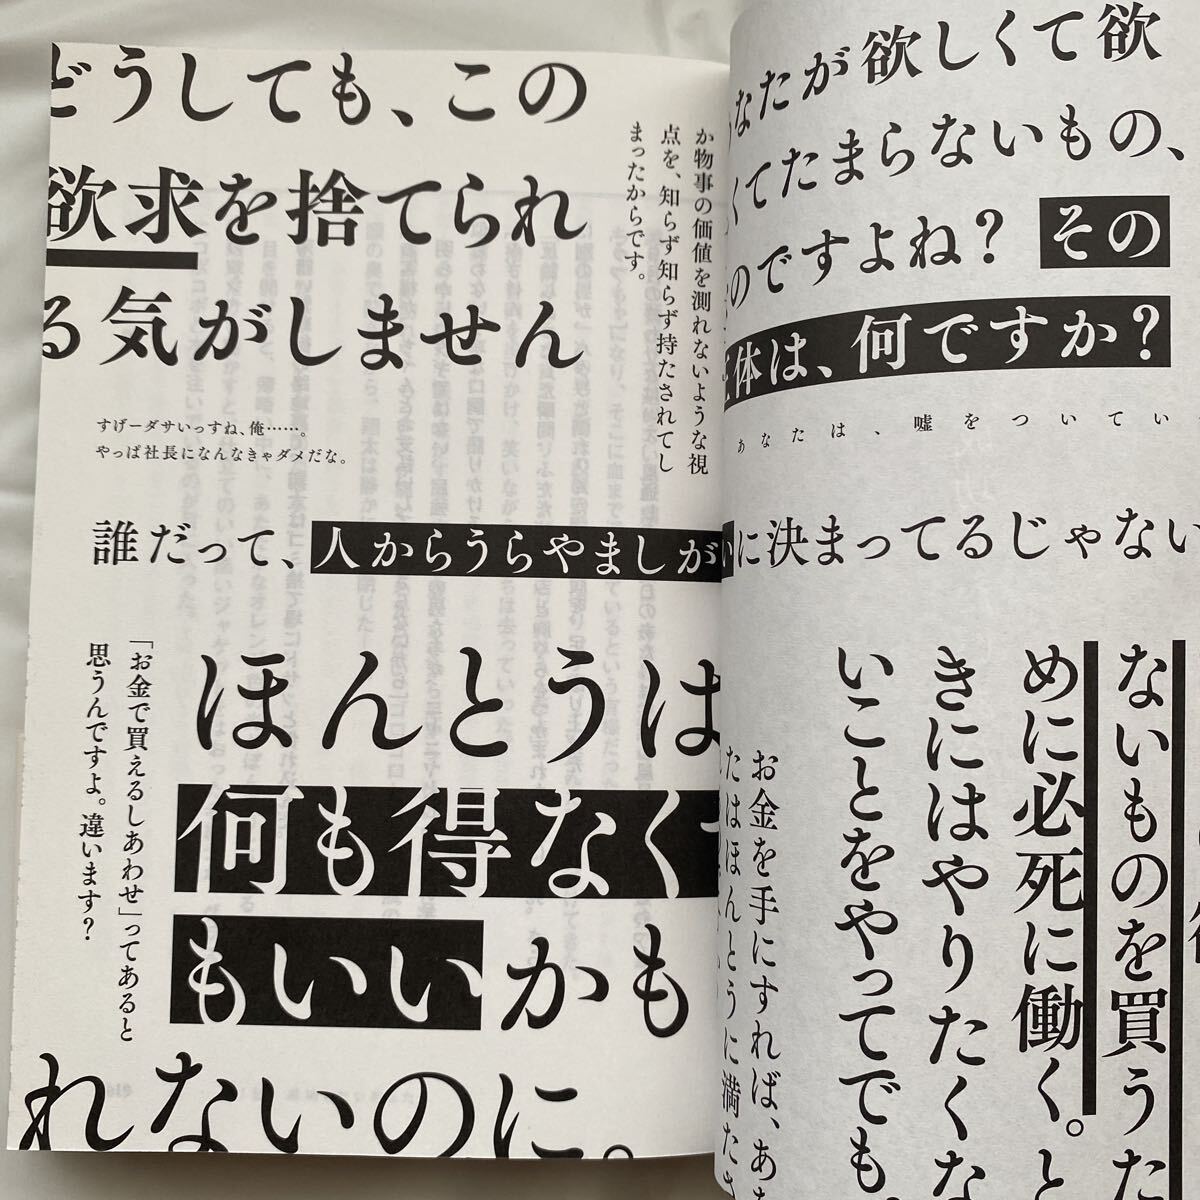 どうしても、この
欲求を捨てられ
る気がしません
か物事の価値を測れないような視
点を、知らず知らず持たされてし
まったからです。
すげーダサいっすね、俺……。
やっぱ社長になんなきゃダメだな。
誰だって、人からうらやましが
ほんとうは
何も得なく
もいいかも
れないのに。
「お金で買えるしあわせ」ってあると
思うんですよ。違います?
なたが欲しくて欲
くてたまらないもの、
のですよね? その
体は、何ですか?
あなたは、嘘をついてい
に決まってるじゃない
ないものを買うた
めに必死に働く。と
きにはやりたくな
いことをやってでも。
お金を手にすれば、あな
たはほんとうに満たさ